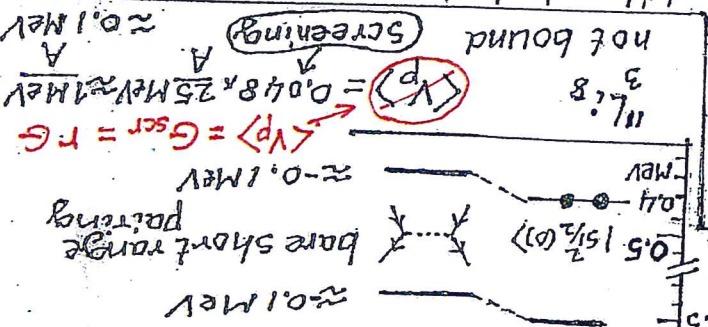 ≈-0.1MeV
-0.5 |s²₁/₂(0)⟩ bare short range
pairing
-0.4
MeV ≈-0.1MeV
⟨Vp⟩ = Gscr = rG
¹¹₃Li₈ ⟨Vp⟩ = 0.048 × 25MeV/A ≈ 1MeV/A
not bound screening ≈0.1MeV